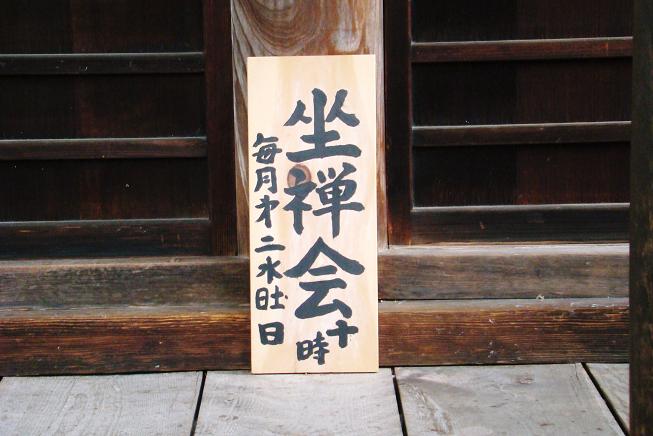 坐禅会
十時
毎月第二水曜日